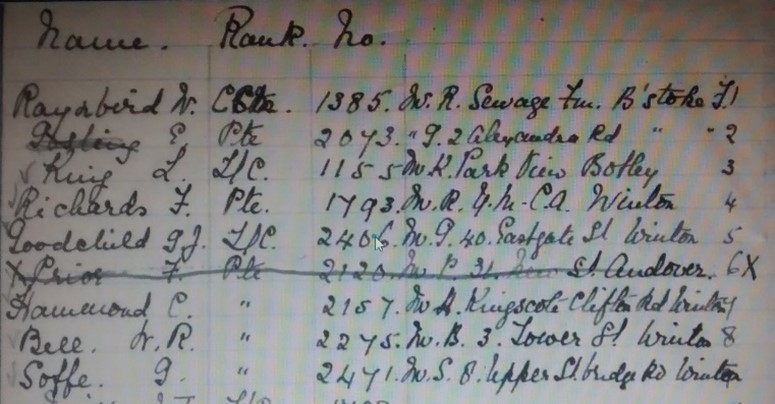 Name. Rank. No.
Raynbird W. 1385. Mr. R. Sewage Fm. B'stoke 1
Gosling E. Pte 2073. " G. 2 Alexandra Rd " " 2
King L. L/C. 1155 Mr K. Park View Botley 3
Richards F. Pte. 1793. Mr. R. Y.M.C.A. Winton 4
Goodchild G.J. L/C. 2406. Mr. G. 40. Eastgate St Winton 5
X Prior F. Pte 2120. Mr P. 31. New St. Andover. 6X
Hammond C. " 2157. Mr H. Kingscote Clifton Rd Winton 7
Bell. W.R. " 2275. Mr. B. 3. Tower St Winton 8
Soffe. G. " 2471. Mr. S. 8. Upper St. Winton